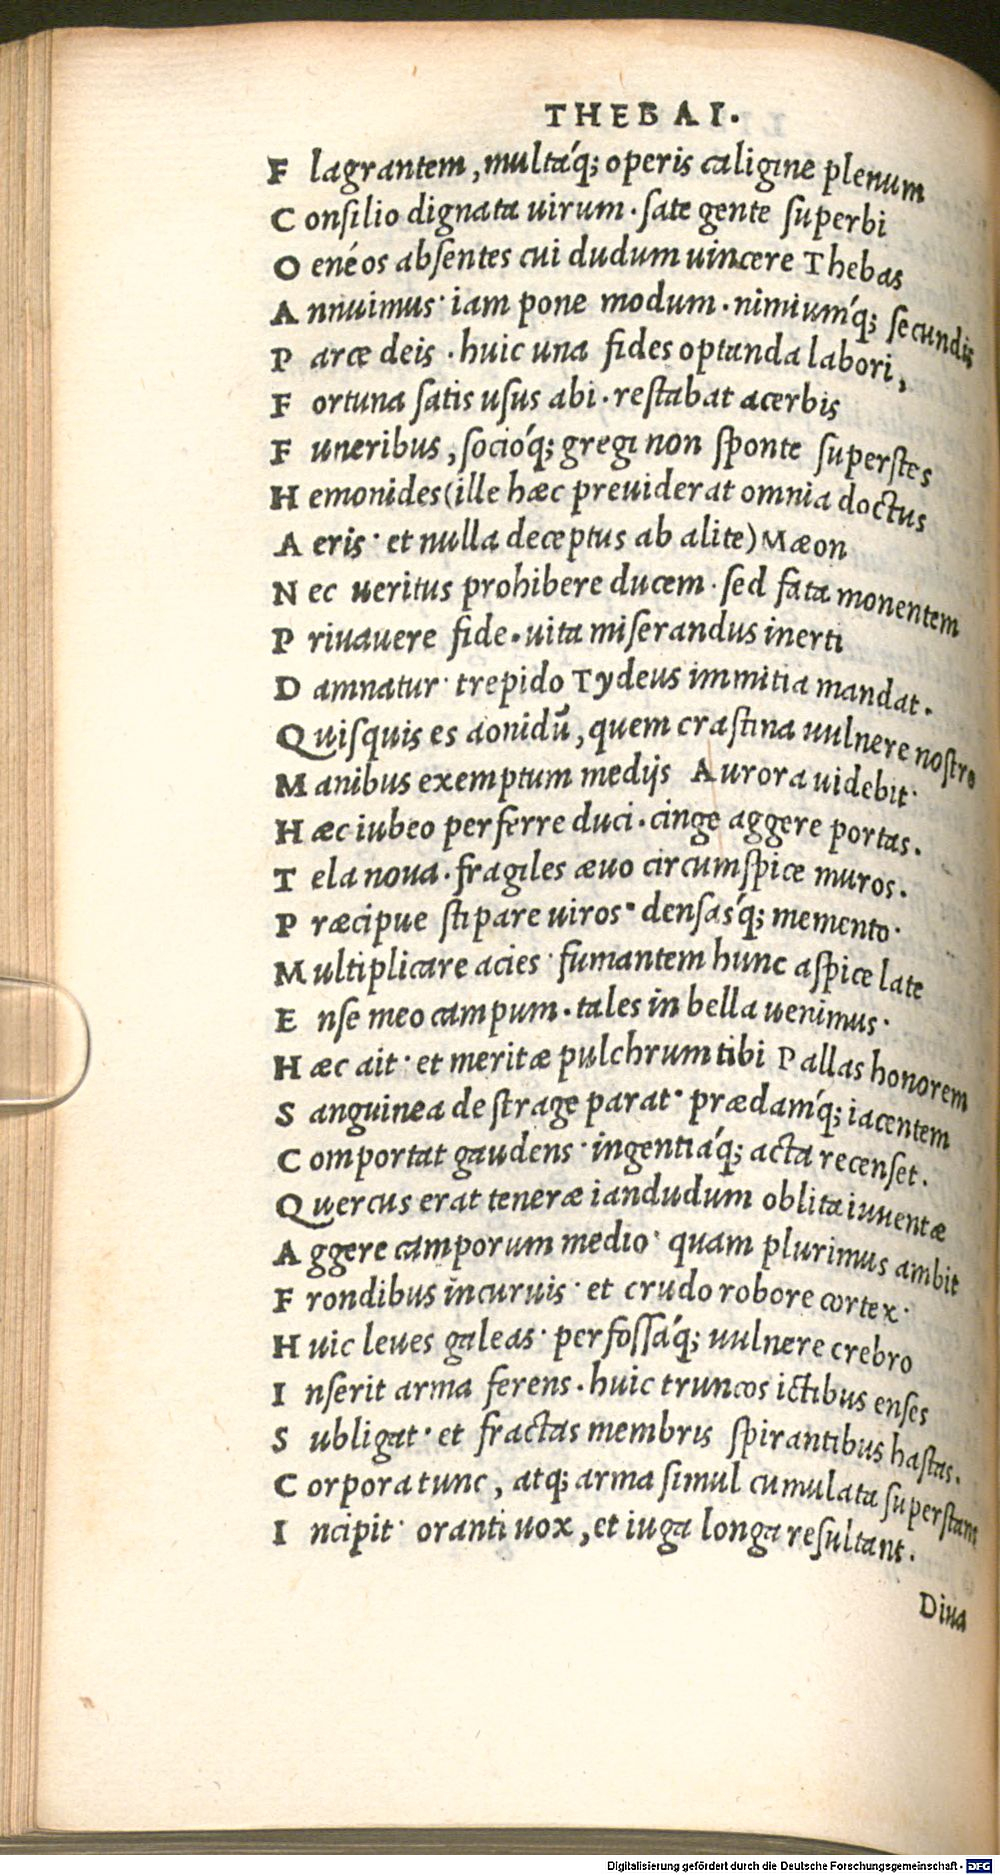 THEBAI.
F lagrantem, multáq; operis caligine plenum
C onsilio dignata uirum. sate gente superbi
O enéos absentes cui dudum uincere Thebas
A nnuimus· iam pone modum. nimiumq́; secundis
P arcæ deis. huic una fides optanda labori,
F ortuna satis usus abi. restabat acerbis
F uneribus, socióq; gregi non sponte superstes
H emonides(ille hæc preuiderat omnia doctus
A eris· et nulla deceptus ab alite) Mæon
N ec ueritus prohibere ducem. sed fata monentem
P riuauere fide. uita miserandus inerti
D amnatur· trepido Tydeus immitia mandat.
Q uisquis es aonidū, quem crastina uulnere nostro
M anibus exemptum medijs Aurora uidebit·
H æc iubeo perferre duci. cinge aggere portas.
T ela noua. fragiles æuo circumspice muros.
P ræcipue stipare uiros· densasq́; memento·
M ultiplicare acies· fumantem hunc aspice late
E nse meo campum. tales in bella uenimus·
H æc ait· et meritæ pulchrum tibi Pallas honorem
S anguinea de strage parat· prædamq́; iacentem
C omportat gaudens· ingentiáq; acta recenset.
Q uercus erat teneræ iandudum oblita iuuentæ
A ggere camporum medio· quam plurimus ambit
F rondibus incuruis· et crudo robore cortex·
H uic leues galeas· perfossáq; uulnere crebro
I nserit arma ferens. huic truncos ictibus enses
S ubligat· et fractas membris spirantibus hastas.
C orpora tunc, atq; arma simul cumulata superstans
I ncipit· oranti uox, et iuga longa resultant.
Diua
Digitalisierung gefördert durch die Deutsche Forschungsgemeinschaft - DFG